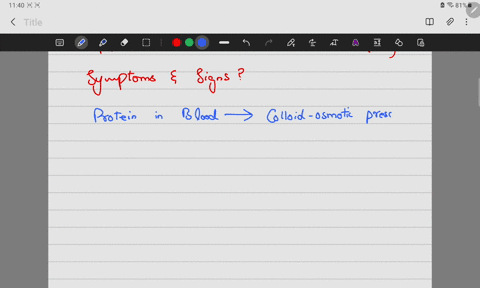 11:40
81%
Title
Symptoms & Signs?
Protein in Blood → Colloid-osmotic press